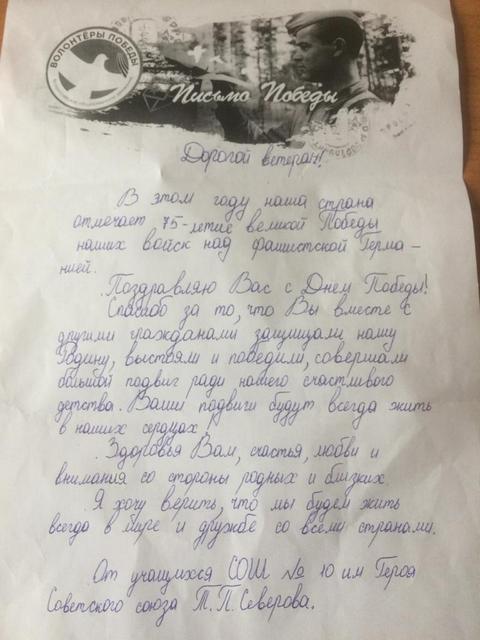 ВОЛОНТЁРЫ ПОБЕДЫ
Письмо Победы
Дорогой ветеран!
В этом году наша страна
отмечает 75-летие великой Победы
наших войск над фашистской Герма-
нией.
Поздравляю Вас с Днем Победы!
Спасибо за то, что Вы вместе с
другими гражданами защищали нашу
Родину, выстояли и победили, совершали
большой подвиг ради нашего счастливого
детства. Ваши подвиги будут всегда жить
в наших сердцах!
Здоровья Вам, счастья, любви и
внимания со стороны родных и близких.
Я хочу верить, что мы будем жить
всегда в мире и дружбе со всеми странами.
От учащихся СОШ № 10 им Героя
Советского союза Т.П. Северова.